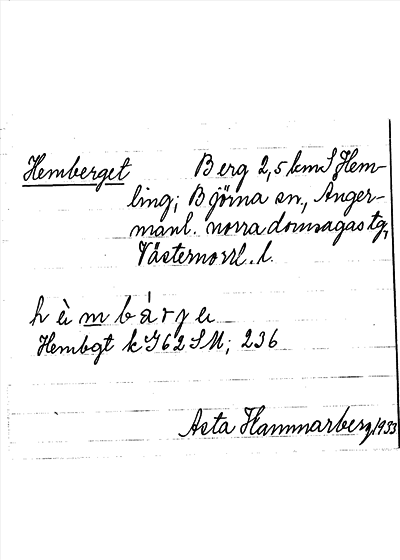 Hemberget Berg 2,5 km S Hem-
ling; Björna sn., Ånger-
manl. norra domsagas tg,
Västernorrl. l.
h è m b á r j e
Hembgt k J62 SM; 236
Asta Hammarberg 1933